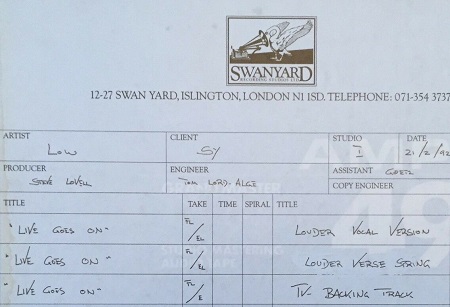 SWANYARD
RECORDING STUDIOS LTD
12-27 SWAN YARD, ISLINGTON, LONDON N1 1SD. TELEPHONE: 071-354 3737
ARTIST CLIENT STUDIO DATE
LOW SY I 21/2/92
PRODUCER ENGINEER ASSISTANT GOETZ
STEVE LOVELL TOM LORD-ALGE COPY ENGINEER
TITLE TAKE TIME SPIRAL TITLE
"LIVE GOES ON" FL/EL LOUDER VOCAL VERSION
"LIVE GOES ON" FL/EL LOUDER VERSE STRING
"LIVE GOES ON" FL/E TV-BACKING TRACK